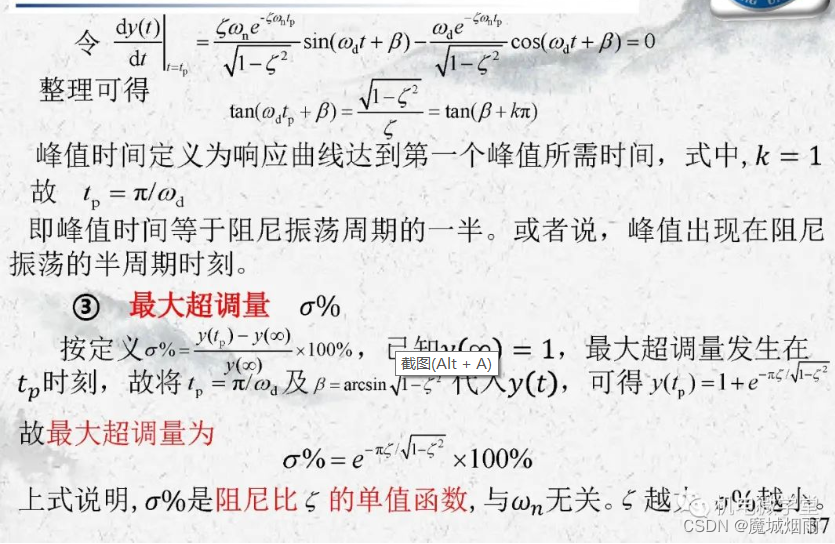 令 dy(t)/dt|t=tp = ζωn e^(-ζωn tp)/√(1-ζ²) sin(ωd t + β) − ωd e^(-ζωn tp)/√(1-ζ²) cos(ωd t + β) = 0
整理可得
tan(ωd tp + β) = √(1-ζ²)/ζ = tan(β + kπ)
峰值时间定义为响应曲线达到第一个峰值所需时间，式中, k = 1
故 tp = π/ωd
即峰值时间等于阻尼振荡周期的一半。或者说，峰值出现在阻尼
振荡的半周期时刻。
③ 最大超调量 σ%
按定义 σ% = (y(tp) − y(∞))/y(∞) ×100%，已知y(∞) = 1，最大超调量发生在
截图(Alt + A)
tp时刻，故将 tp = π/ωd 及 β = arcsin √(1-ζ²) 代入y(t)，可得 y(tp) = 1 + e^(-πζ/√(1-ζ²))
故最大超调量为
σ% = e^(-πζ/√(1-ζ²)) ×100%
上式说明, σ%是阻尼比 ζ 的单值函数, 与ωn无关。ζ 越大 σ%越小。
CSDN @魔城烟雨
37